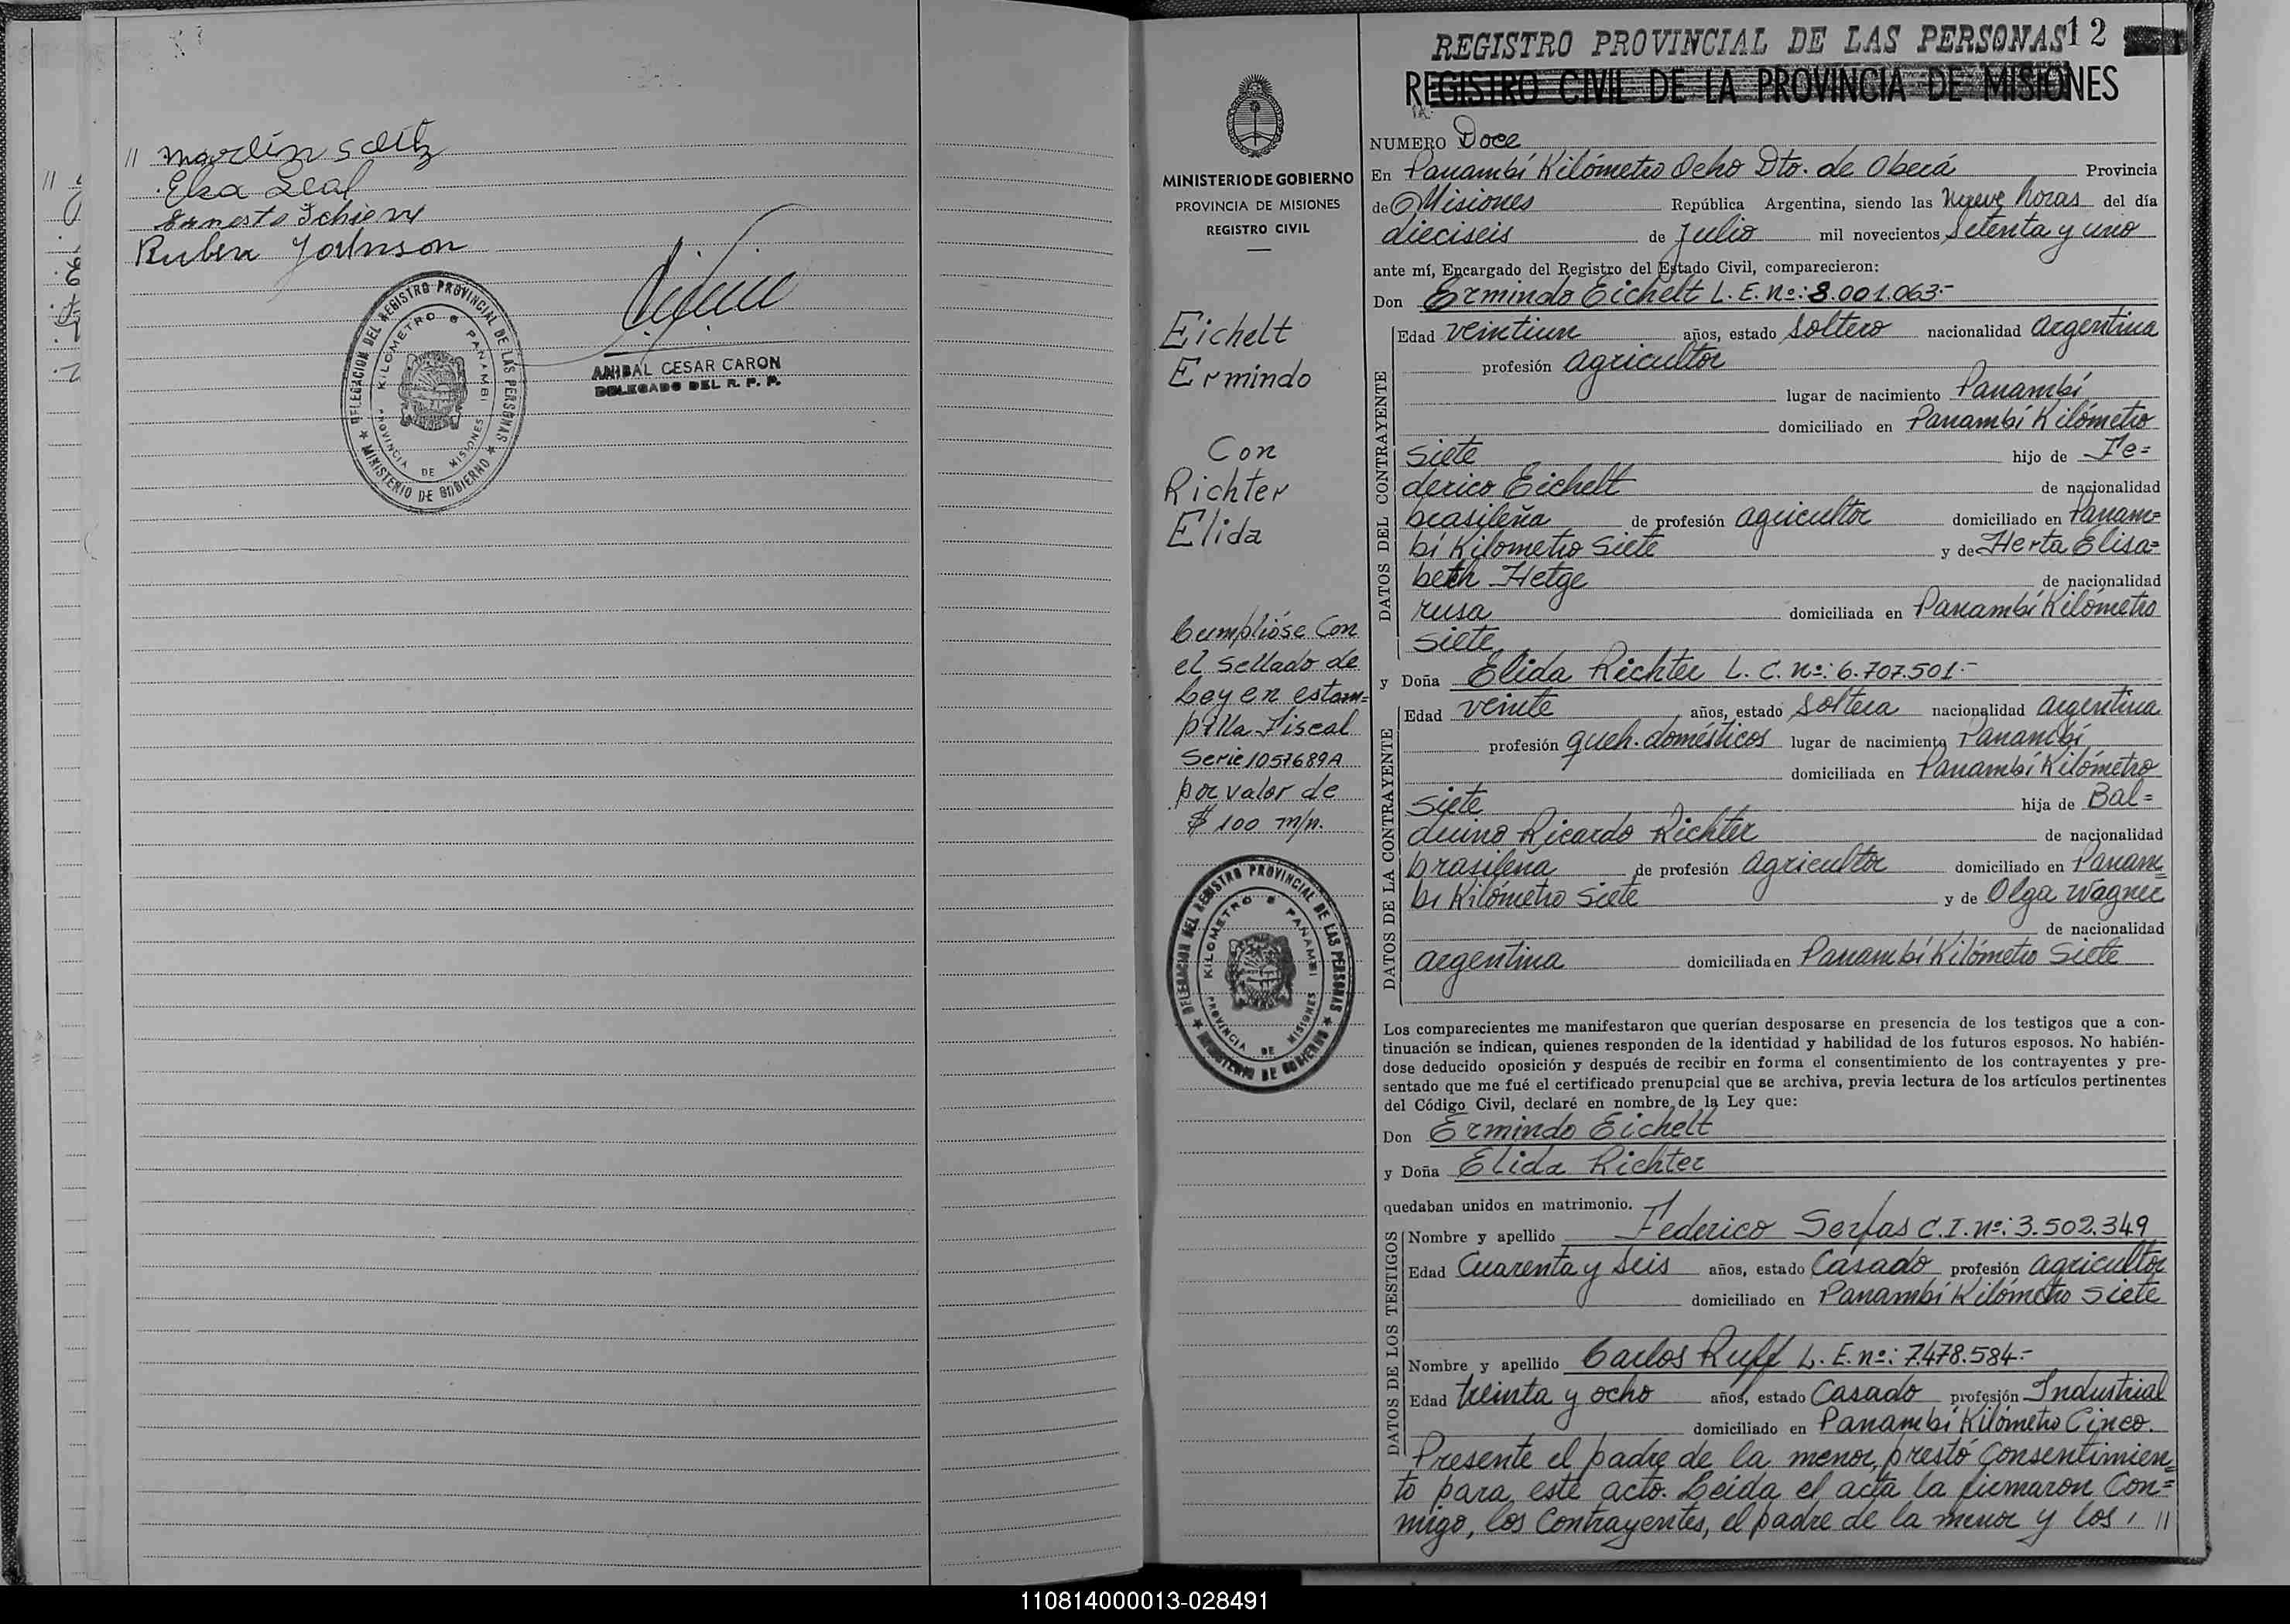 // Martín Seitz
Elsa Leal
Ernesto Schierv
Ruben Johnson
DELEGACION DEL REGISTRO PROVINCIAL DE LAS PERSONAS
★ MINISTERIO DE GOBIERNO ★
KILOMETRO 8 PANAMBI
PROVINCIA DE MISIONES
ANIBAL CESAR CARON
DELEGADO DEL R. P. P.
MINISTERIO DE GOBIERNO
PROVINCIA DE MISIONES
REGISTRO CIVIL
Eichelt
Ermindo
Con
Richter
Elida
Cumplióse Con
el Sellado de
Ley en estam=
pilla Fiscal
Serie 1057689A
por valor de
$ 100 m/n.
DELEGACION DEL REGISTRO PROVINCIAL DE LAS PERSONAS
★ MINISTERIO DE GOBIERNO ★
KILOMETRO 8 PANAMBI
PROVINCIA DE MISIONES
REGISTRO PROVINCIAL DE LAS PERSONAS 12
REGISTRO CIVIL DE LA PROVINCIA DE MISIONES
NUMERO Doce
En Panambí Kilómetro Ocho Dto. de Oberá Provincia
de Misiones República Argentina, siendo las Nueve horas del día
dieciseis de Julio mil novecientos Setenta y uno
ante mí, Encargado del Registro del Estado Civil, comparecieron:
Don Ermindo Eichelt L. E. nº: 8.001.063.-
DATOS DEL CONTRAYENTE
Edad veintiun años, estado Soltero nacionalidad argentina
profesión agricultor
lugar de nacimiento Panambí
domiciliado en Panambí Kilómetro
Siete hijo de Fe=
derico Eichelt de nacionalidad
brasileña de profesión agricultor domiciliado en Panam=
bí Kilometro Siete y de Herta Elisa=
beth Hetge de nacionalidad
rusa domiciliada en Panambí Kilómetro
Siete
y Doña Elida Richter L. C. nº: 6.707.501.-
DATOS DE LA CONTRAYENTE
Edad veinte años, estado Soltera nacionalidad argentina
profesión queh. domésticos lugar de nacimiento Panambí
domiciliada en Panambí Kilómetro
Siete hija de Bal=
duino Ricardo Richter de nacionalidad
brasileña de profesión agricultor domiciliado en Panam=
bi Kilómetro Siete y de Olga Wagner
de nacionalidad
argentina domiciliada en Panambí Kilómetro Siete
Los comparecientes me manifestaron que querían desposarse en presencia de los testigos que a con-
tinuación se indican, quienes responden de la identidad y habilidad de los futuros esposos. No habién-
dose deducido oposición y después de recibir en forma el consentimiento de los contrayentes y pre-
sentado que me fué el certificado prenupcial que se archiva, previa lectura de los artículos pertinentes
del Código Civil, declaré en nombre de la Ley que:
Don Ermindo Eichelt
y Doña Elida Richter
quedaban unidos en matrimonio.
DATOS DE LOS TESTIGOS
Nombre y apellido Federico Serfas C.I. nº: 3.502.349
Edad Cuarenta y Seis años, estado Casado profesión agricultor
domiciliado en Panambí Kilómetro Siete
Nombre y apellido Carlos Ruff L. E. nº: 7.478.584.-
Edad treinta y ocho años, estado Casado profesión Industrial
domiciliado en Panambí Kilómetro Cinco.
Presente el padre de la menor, prestó Consentimien=
to para este acto. Leída el acta la firmaron Con=
migo, los Contrayentes, el padre de la menor y los, //
110814000013-028491